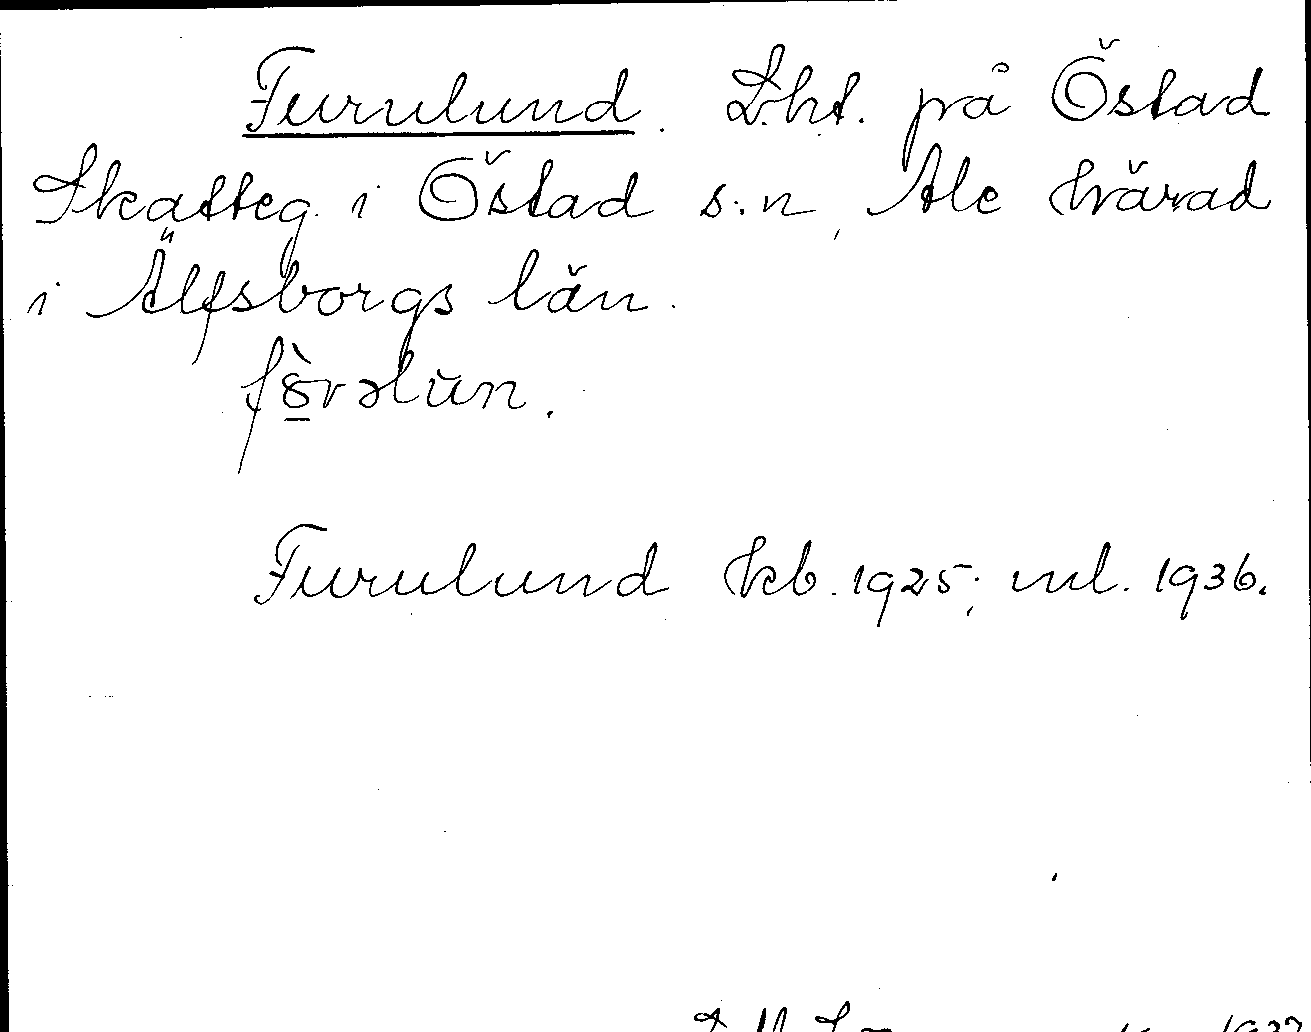 Furulund. Lht. på Östad
Skatteg. i Östad s:n, Ale härad
i Älfsborgs län.
fö̀rəlun.
Furulund kb. 1925; ml. 1936.
1937